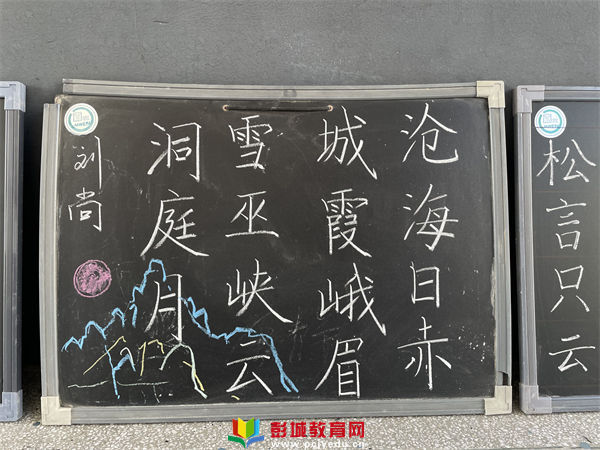 沧海日赤
城霞峨眉
雪巫峡云
洞庭月
刘尚
松言只云
彭城教育网
www.pcjyedu.cn